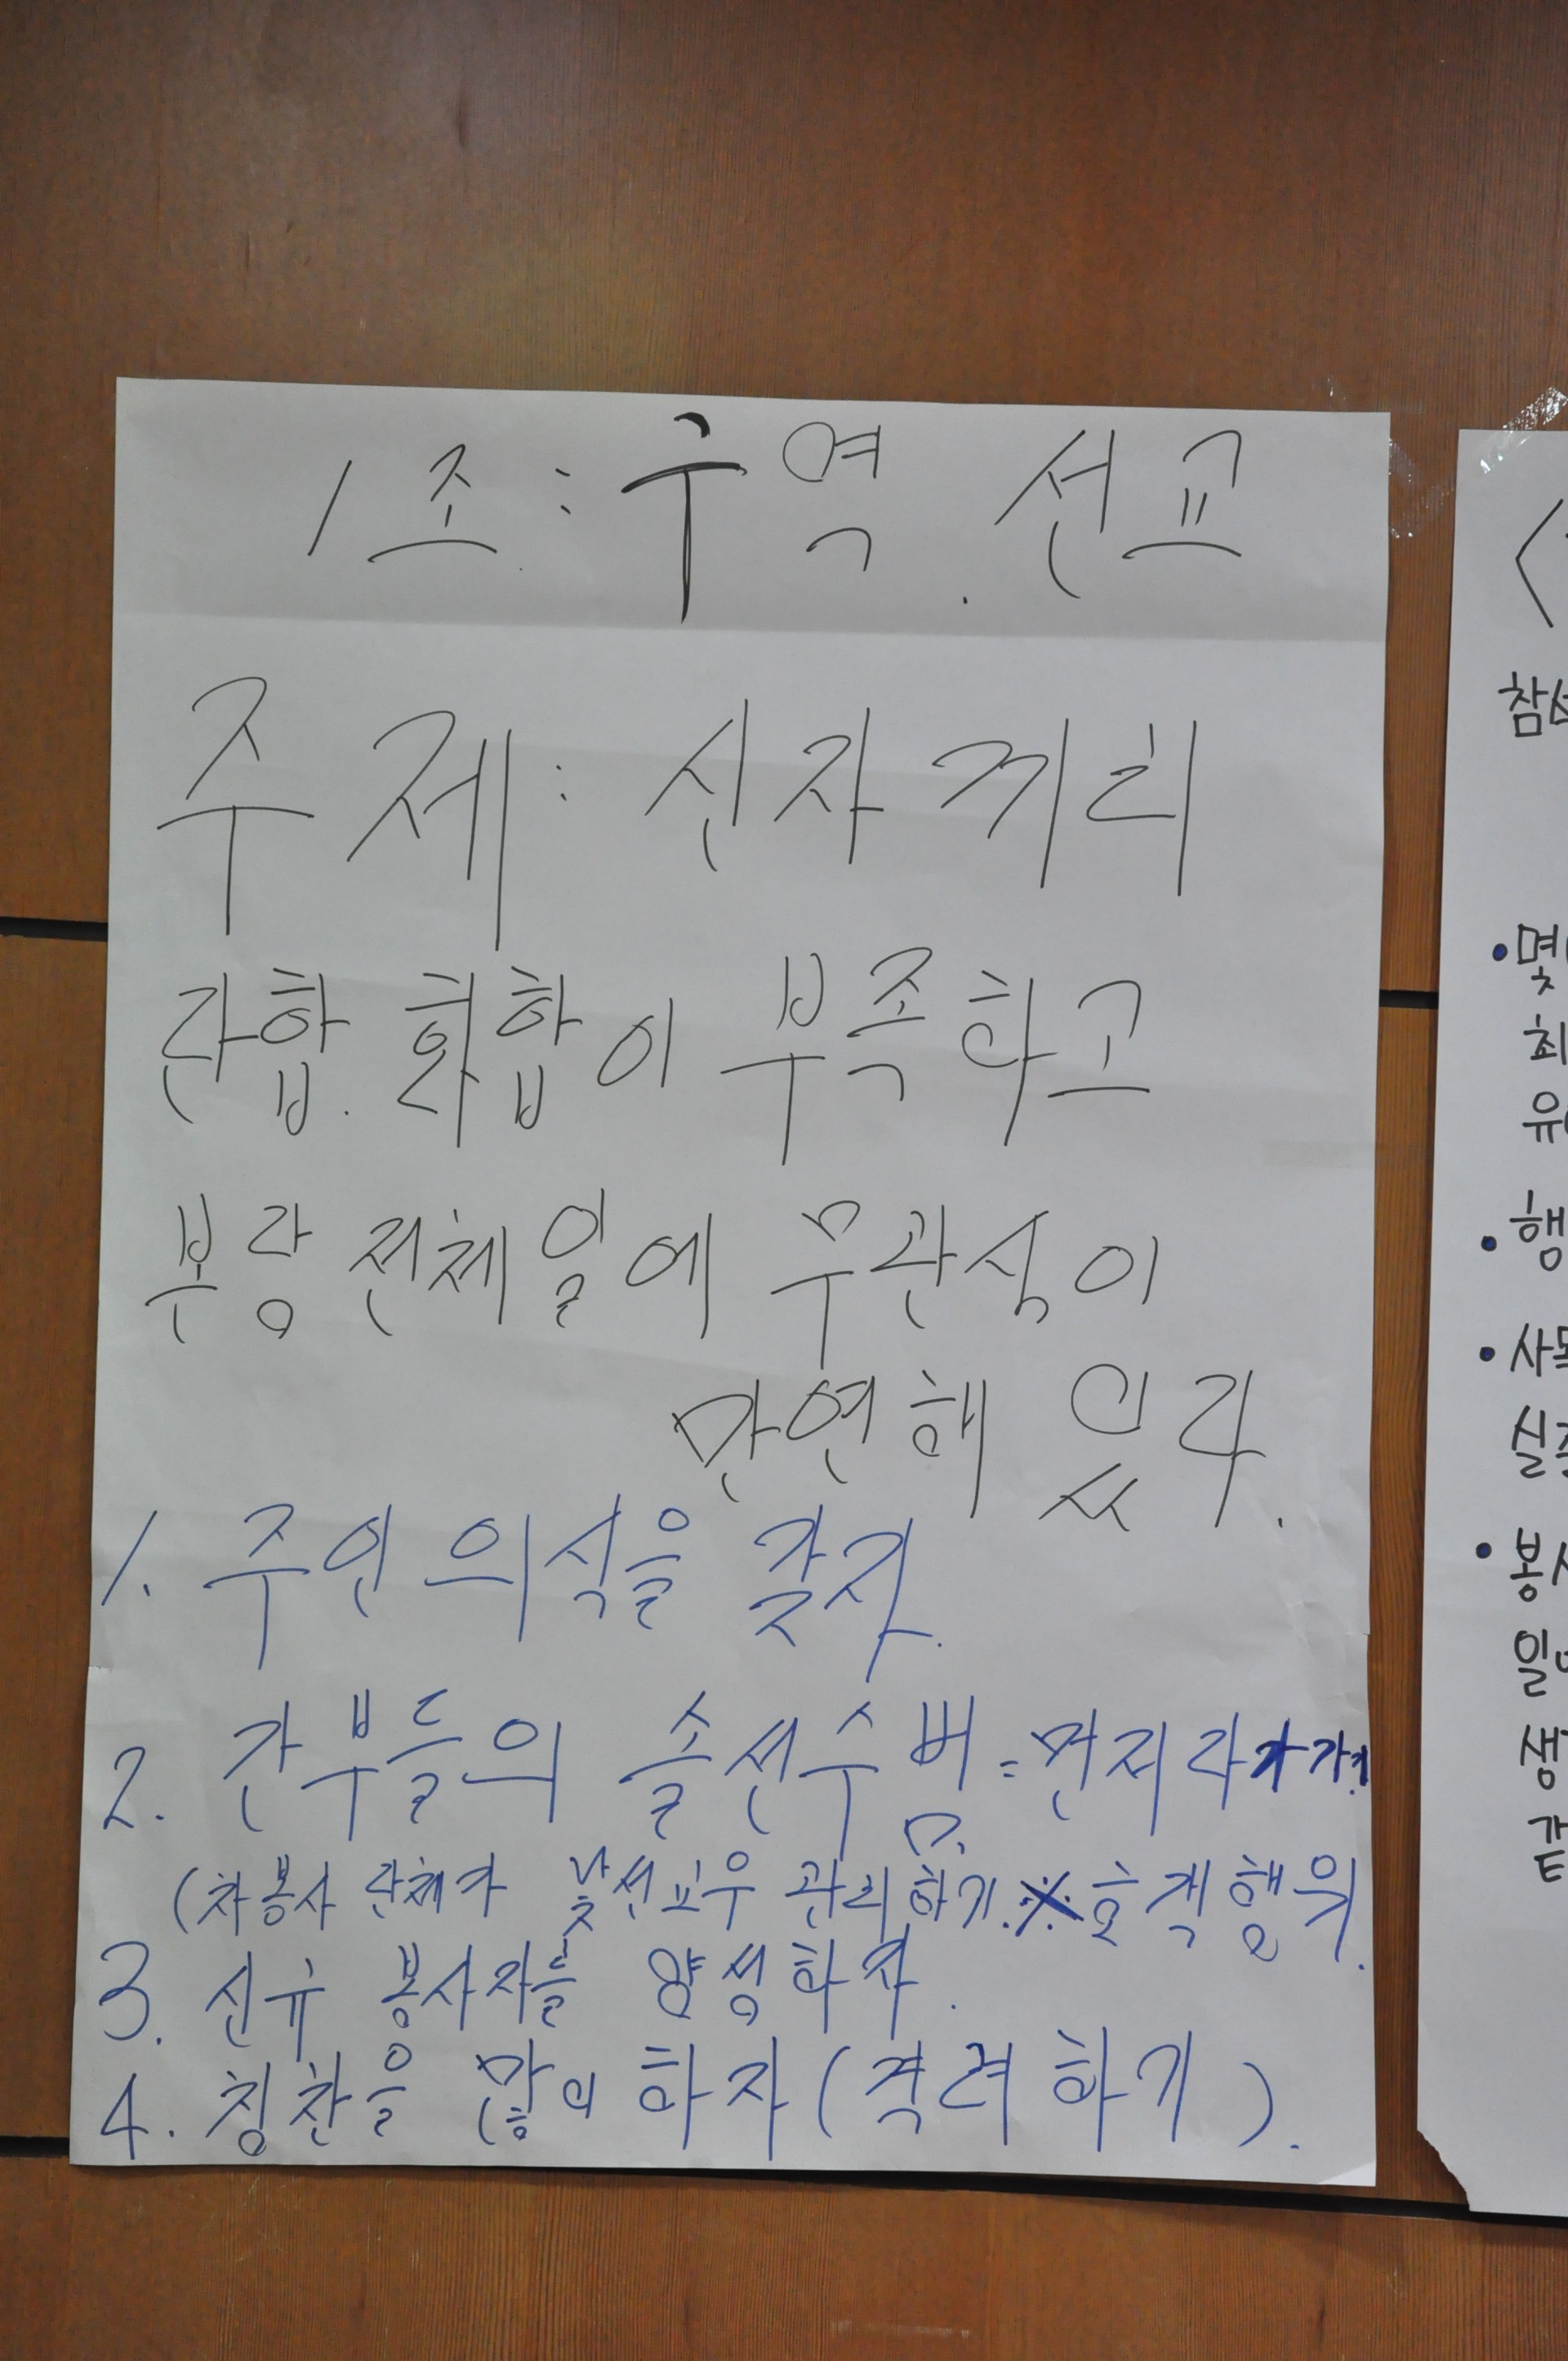 1조 : 구역. 선교
주제: 신자끼리
단합. 화합이 부족하고
본당 전체일에 무관심이
만연해 있다.
1. 주인의식을 갖자.
2. 간부들의 솔선수범 = 먼저 다가가기
(차봉사 단체가 선교우 관리하기. ※ 호객행위.
3. 신규 봉사자를 양성하자.
4. 칭찬을 많이 하자 (격려하기).
참
• 몇
최
유
• 행
• 사목
실
• 봉사
일
생
같